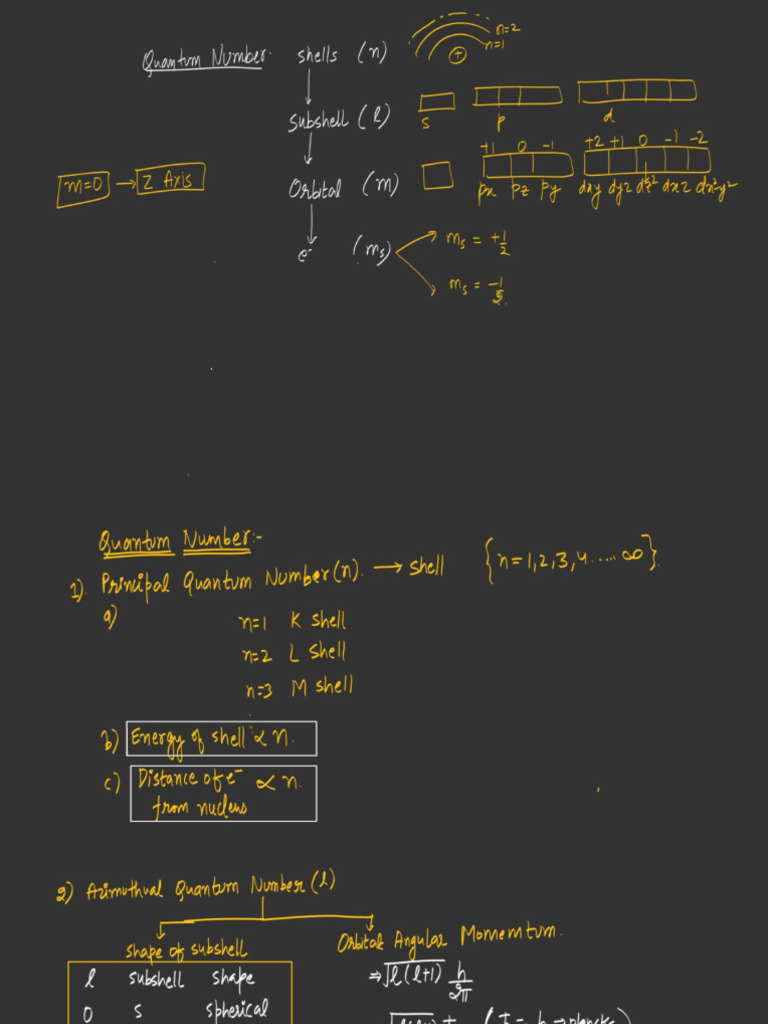 Quantum Number: shells (n)
n=2
n=1
+
Subshell (l)
s p d
m=0 → Z Axis
Orbital (m)
+1 0 -1 +2 +1 0 -1 -2
px pz py dxy dyz dz² dxz dx²-y²
e⁻ (ms)
ms = +1/2
ms = -1/2
Quantum Number:-
1). Principal Quantum Number(n). → shell {n=1,2,3,4.....∞}.
a)
n=1 K shell
n=2 L shell
n=3 M shell
b) Energy of shell ∝ n.
c) Distance of e⁻ ∝ n.
from nucleus
2) Azimuthual Quantum Number (l)
shape of subshell Orbital Angular Momemtum.
l subshell shape
⇒ √l(l+1) h/2π
0 s spherical